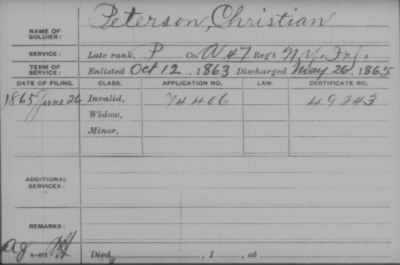 NAME OF SOLDIER: Peterson, Christian
SERVICE: Late rank, P Co A, 47 Reg't N.Y. Inf.
TERM OF SERVICE: Enlisted Oct 12, 1863 Discharged May 26, 1865
DATE OF FILING. CLASS. APPLICATION NO. LAW. CERTIFICATE NO.
1865 June 26 Invalid, 74406 49243
Widow,
Minor,
ADDITIONAL SERVICES:
REMARKS:
Died , 1 , at